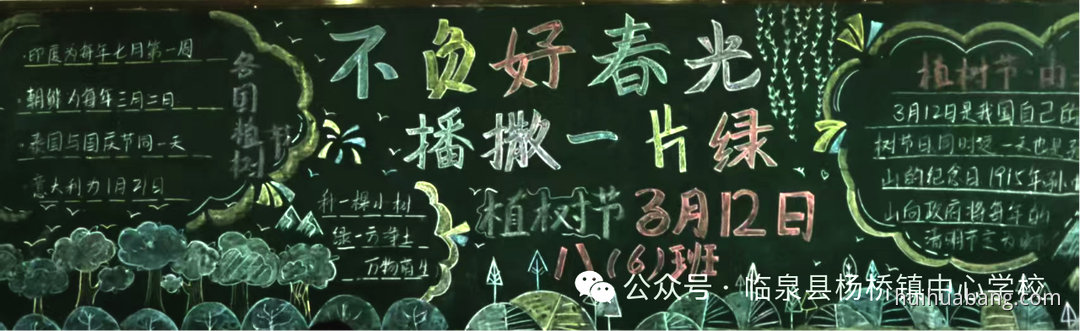 ·印度为每年七月第一周
·朝鲜为每年三月二日
·泰国与国庆节同一天
·意大利为1月21日
各国植树节
不负好春光
播撒一片绿
植树节3月12日
八(6)班
种一棵小树
绿一方净土
万物萌生
植树节·由
3月12日是我国自己的
树节日,同时这一天也是孙
山的纪念日1915年孙
山向政府将每年的
清明节定为
公众号·临泉县杨桥镇中心学校
heihuabang.com